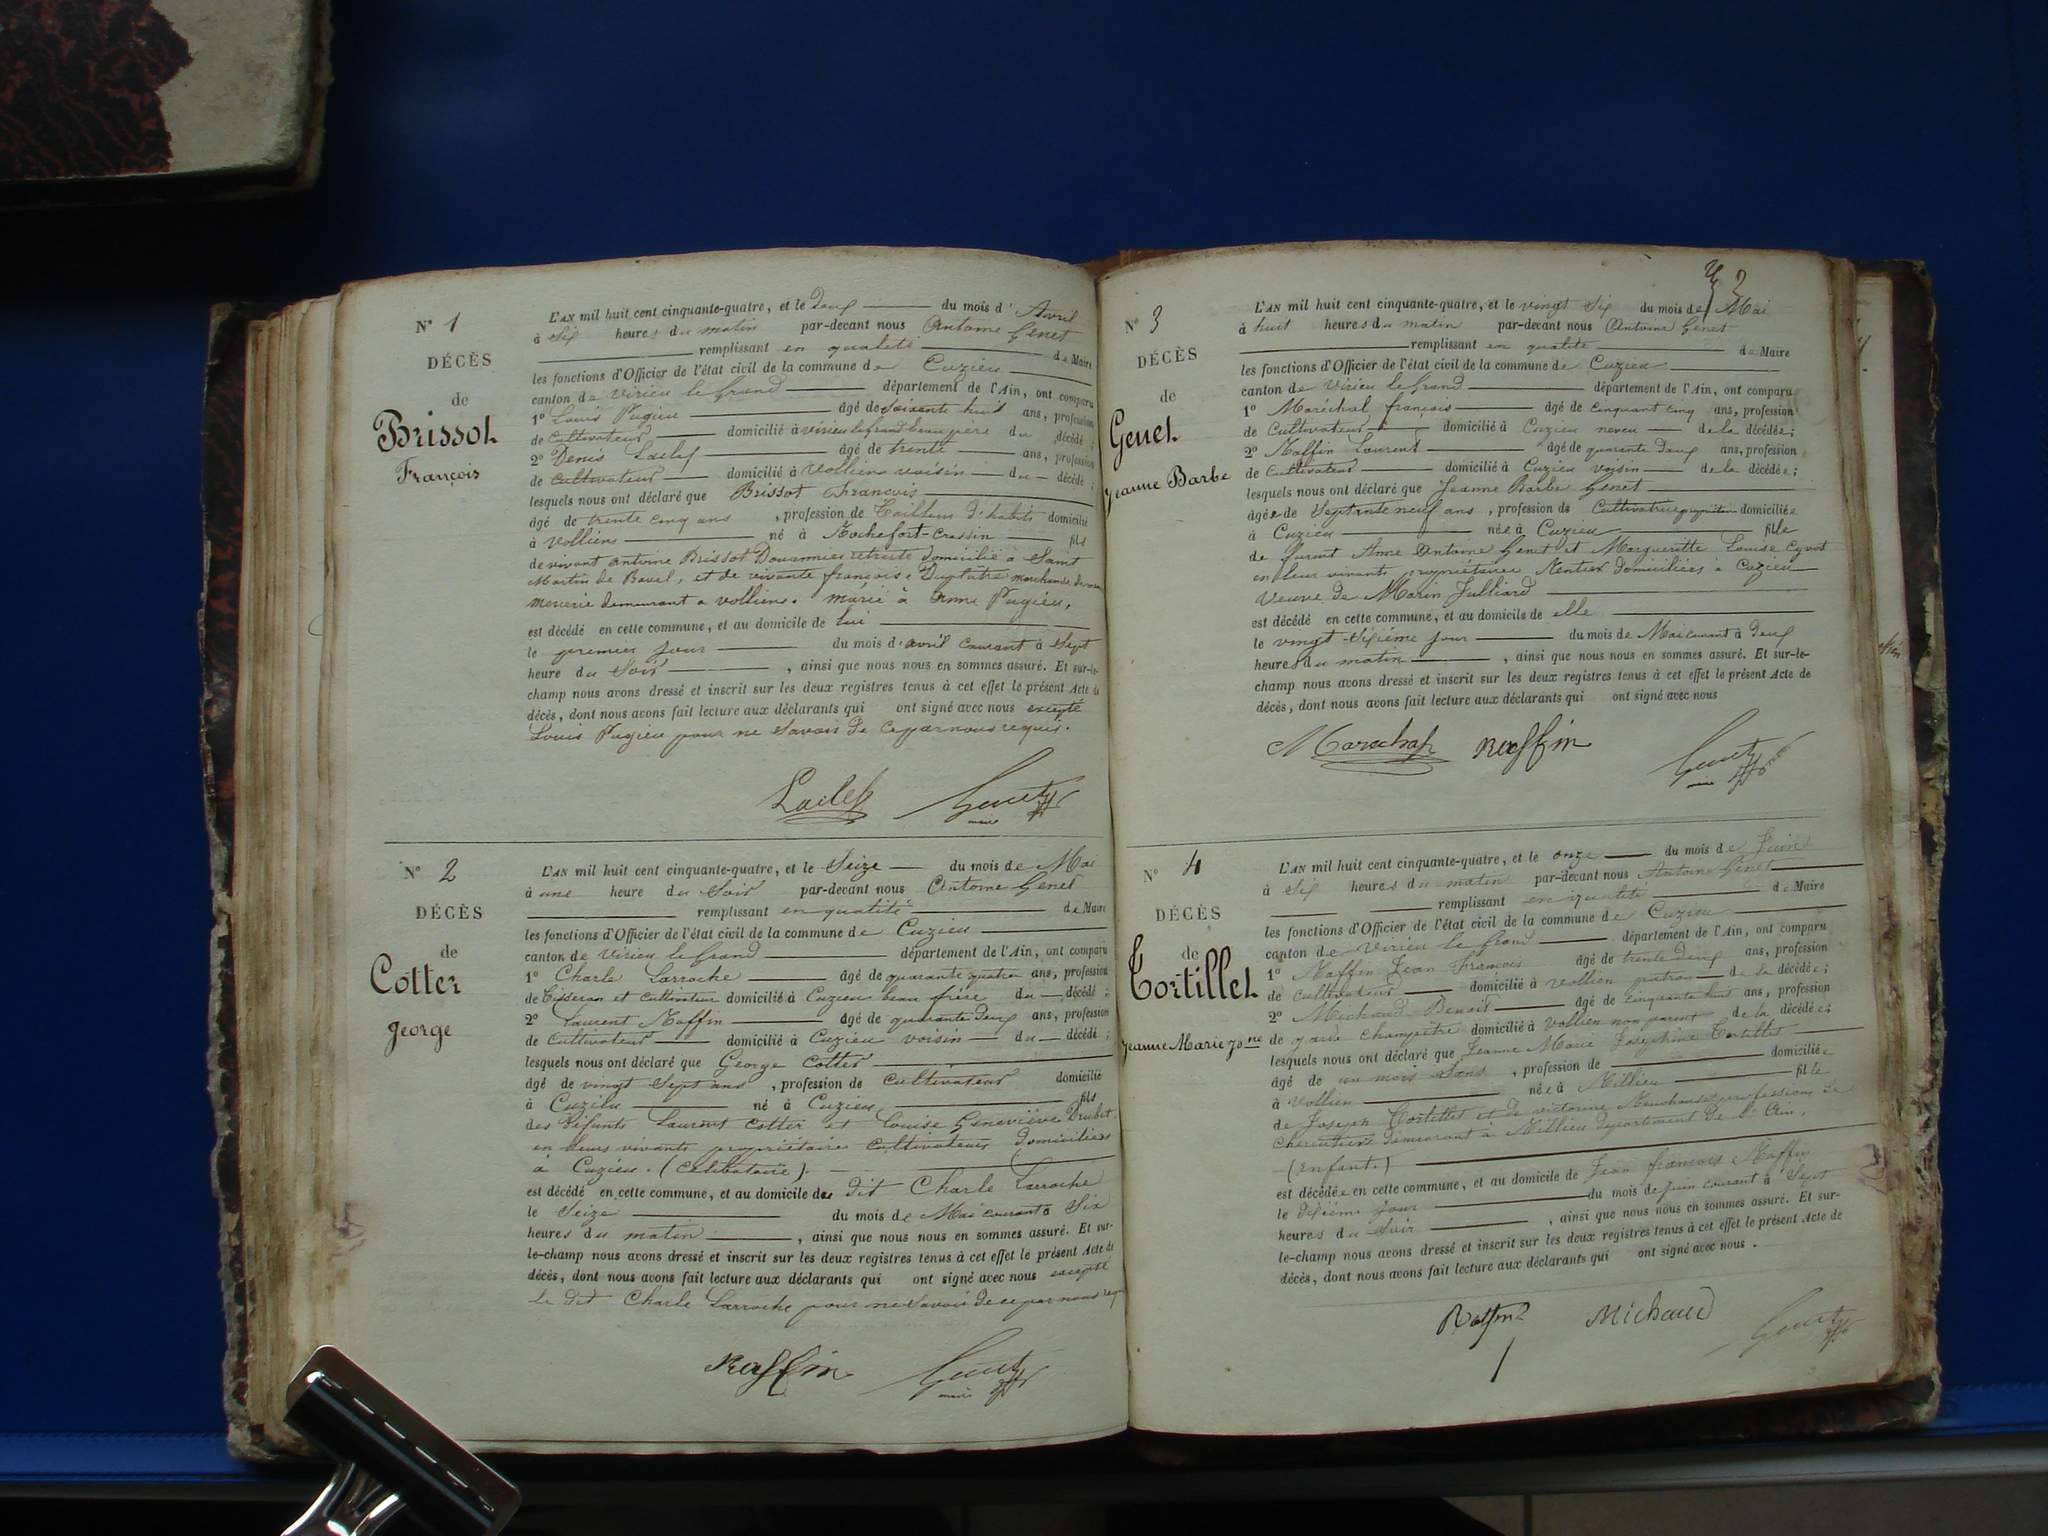 N° 1
DÉCÈS
de
Brissot
François
L'AN mil huit cent cinquante-quatre, et le deux du mois d'Avril
à Six heures du matin par-devant nous Antoine Genet
remplissant en qualité de Maire
les fonctions d'Officier de l'état civil de la commune de Cuzieu
canton de Virieu le Grand département de l'Ain, ont comparu
1° Louis Pugieu âgé de soixante huit ans, profession
de Cultivateur domicilié à virieu le grand beau père du décédé ;
2° Denis âgé de trente ans, profession
de cultivateur domicilié à Volliens voisin du décédé ;
lesquels nous ont déclaré que Brissot François
âgé de trente cinq ans , profession de Tailleur d'habits domicilié
à Volliens né à Rochefort fils
de vivant antoine Brissot Douannier retraité domicilié à Saint
Martin de Bavel, et de vivante françoise marchande de
mercerie demeurant a volliens. marié à Anne Pugieu,
est décédé en cette commune, et au domicile de lui
le premier jour du mois d'avril courant à Sept
heure du Soir , ainsi que nous nous en sommes assuré. Et sur-le-
champ nous avons dressé et inscrit sur les deux registres tenus à cet effet le présent Acte de
décès, dont nous avons fait lecture aux déclarants qui ont signé avec nous excepté
Louis Pugieu pour ne Savoir de ce par nous requis.
Genet
maire
N° 2
DÉCÈS
de
Cotter
george
L'AN mil huit cent cinquante-quatre, et le Seize du mois de Mai
à une heure du Soir par-devant nous Antoine Genet
remplissant en qualité de Maire
les fonctions d'Officier de l'état civil de la commune de Cuzieu
canton de Virieu le Grand département de l'Ain, ont comparu
1° Charle Larroche âgé de quarante quatre ans, profession
de Tisseran et Cultivateur domicilié à Cuzieu beau frère du décédé ;
2° Laurent Raffin âgé de quarante deux ans, profession
de Cultivateur domicilié à Cuzieu voisin du décédé ;
lesquels nous ont déclaré que George Cotter
âgé de vingt Sept ans , profession de Cultivateur domicilié
à Cuzieu né à Cuzieu fils
des défunts Laurent Cotter et Louise Geneviève
en leurs vivants propriétaires Cultivateurs domiciliers
à Cuzieu. (Célibataire)
est décédé en cette commune, et au domicile de dit Charle Larroche
le Seize du mois de Mai courant à Six
heures du matin , ainsi que nous nous en sommes assuré. Et sur-
le-champ nous avons dressé et inscrit sur les deux registres tenus à cet effet le présent Acte de
décès, dont nous avons fait lecture aux déclarants qui ont signé avec nous excepté
le dit Charle Larroche pour ne Savoir de ce par nous requi
Raffin
Genet
maire
2
N° 3
DÉCÈS
de
Genet
Jeanne Barbe
L'AN mil huit cent cinquante-quatre, et le vingt Six du mois de Mai
à huit heures du matin par-devant nous Antoine Genet
remplissant en qualité de Maire
les fonctions d'Officier de l'état civil de la commune de Cuzieu
canton de Virieu le Grand département de l'Ain, ont comparu
1° Maréchal françois âgé de cinquant cinq ans, profession
de Cultivateur domicilié à Cuzieu neveu de la décédée;
2° Raffin Laurent âgé de quarante deux ans, profession
de Cultivateur domicilié à Cuzieu voisin de la décédée;
lesquels nous ont déclaré que Jeanne Barbe Genet
âgée de Septante neuf ans , profession de Cultivatrice propriétaire domiciliée
à Cuzieu née à Cuzieu fille
de furent Anne Antoine Genet et Marguerite Louise
en leur vivants propriétaires Rentier domiciliées à Cuzieu
Veuve de Marin Julliard
est décédé en cette commune, et au domicile de elle
le vingt-Sixième jour du mois de Mai courant à deux
heures du matin , ainsi que nous nous en sommes assuré. Et sur-le-
champ nous avons dressé et inscrit sur les deux registres tenus à cet effet le présent Acte de
décès, dont nous avons fait lecture aux déclarants qui ont signé avec nous
Marechal
Raffin
Genet
maire
N° 4
DÉCÈS
de
Tortillet
Jeanne Marie
L'AN mil huit cent cinquante-quatre, et le onze du mois de Juin
à Six heures du matin par-devant nous Antoine Genet
remplissant en qualité de Maire
les fonctions d'Officier de l'état civil de la commune de Cuzieu
canton de Virieu le Grand département de l'Ain, ont comparu
1° Raffin Jean François âgé de trente deux ans, profession
de Cultivateur domicilié à Vollien patron de la décédée;
2° Michaud Benoit âgé de cinquante huit ans, profession
de garde Champêtre domicilié à Vollien non parent de la décédée;
lesquels nous ont déclaré que Jeanne Marie Josephine Tortillet
âgé de un mois , profession de domiciliée
à Vollien née à Millieu fille
de Joseph Tortillet et de victorine professions de
demeurant à Millieu département de l'Ain,
(Enfant.)
est décédée en cette commune, et au domicile de Jean francois Raffin
le dixième jour du mois de Juin courant à Sept
heures du Soir , ainsi que nous nous en sommes assuré. Et sur-
le-champ nous avons dressé et inscrit sur les deux registres tenus à cet effet le présent Acte de
décès, dont nous avons fait lecture aux déclarants qui ont signé avec nous .
Raffin
Michaud
Genet